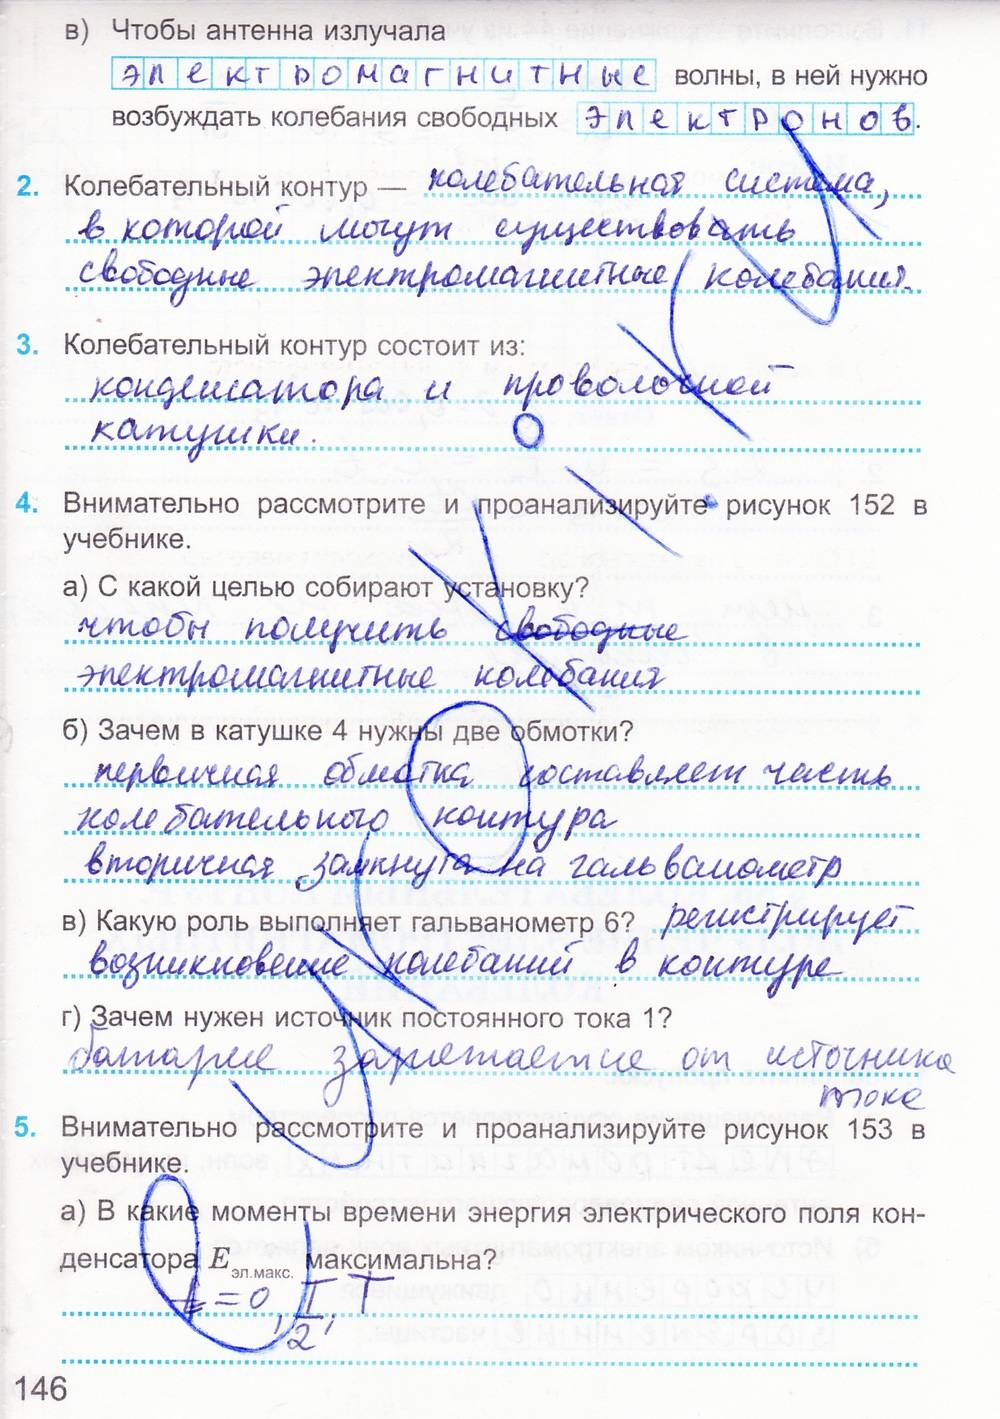 в) Чтобы антенна излучала
электромагнитные волны, в ней нужно
возбуждать колебания свободных электронов.
2. Колебательный контур — колебательная система,
в которой могут существовать
свободные электромагнитные колебания.
3. Колебательный контур состоит из:
конденсатора и проволочной
катушки.
4. Внимательно рассмотрите и проанализируйте рисунок 152 в
учебнике.
а) С какой целью собирают установку?
чтобы получить свободные
электромагнитные колебания
б) Зачем в катушке 4 нужны две обмотки?
первичная обмотка составляет часть
колебательного контура
вторичная замкнута на гальванометр
в) Какую роль выполняет гальванометр 6? регистрирует
возникновение колебаний в контуре
г) Зачем нужен источник постоянного тока 1?
от источника
тока
5. Внимательно рассмотрите и проанализируйте рисунок 153 в
учебнике.
а) В какие моменты времени энергия электрического поля кон-
денсатора E эл.макс. максимальна?
t = 0, T/2, T
146